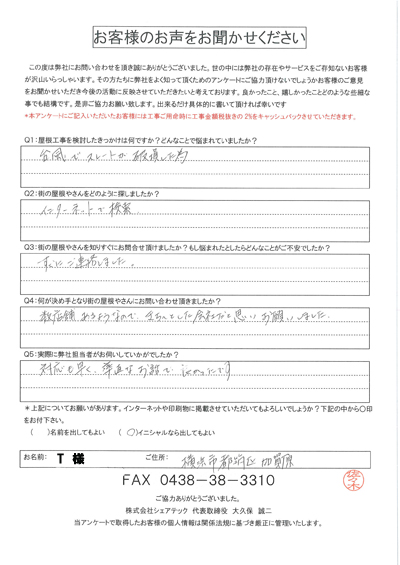 お客様のお声をお聞かせください
この度は弊社にお問い合わせを頂き誠にありがとうございました。世の中には弊社の存在やサービスをご存知ないお客様
が沢山いらっしゃいます。その方たちに弊社をよく知って頂くためのアンケートにご協力頂けないでしょうかお客様のご意見
をお聞かせいただき今後の活動に反映させていただきたいと考えております。良かったこと、嬉しかったことどのような些細な
事でも結構です。是非ご協力お願い致します。出来るだけ具体的に書いて頂ければ幸いです
*本アンケートにご記入いただいたお客様には工事ご用命時に工事金額税抜きの 2%をキャッシュバックさせていただきます。
Q1:屋根工事を検討したきっかけは何ですか?どんなことで悩まれていましたか?
台風でスレートが破損した為
Q2:街の屋根やさんをどのように探しましたか?
インターネットで検索
Q3:街の屋根やさんを知りすぐにお問合せ頂けましたか?もし悩まれたとしたらどんなことがご不安でしたか?
すぐにご連絡しました。
Q4:何が決め手となり街の屋根やさんにお問い合わせ頂きましたか?
数店舗あるようなので、きちんとした会社だと思いお願いしました。
Q5:実際に弊社担当者がお伺いしていかがでしたか?
対応も早く、率直なお話で、決めたいです
*上記についてお願いがあります。インターネットや印刷物に掲載させていただいてもよろしいでしょうか?下記の中から〇印
をお付下さい。
( )名前を出してもよい (〇)イニシャルなら出してもよい
お名前: T 様 ご住所: 横浜市都筑区加賀原
佐々木
FAX 0438-38-3310
ご協力ありがとうございました。
株式会社シェアテック 代表取締役 大久保 誠二
当アンケートで取得したお客様の個人情報は関係法規に基づき厳正に管理いたします。